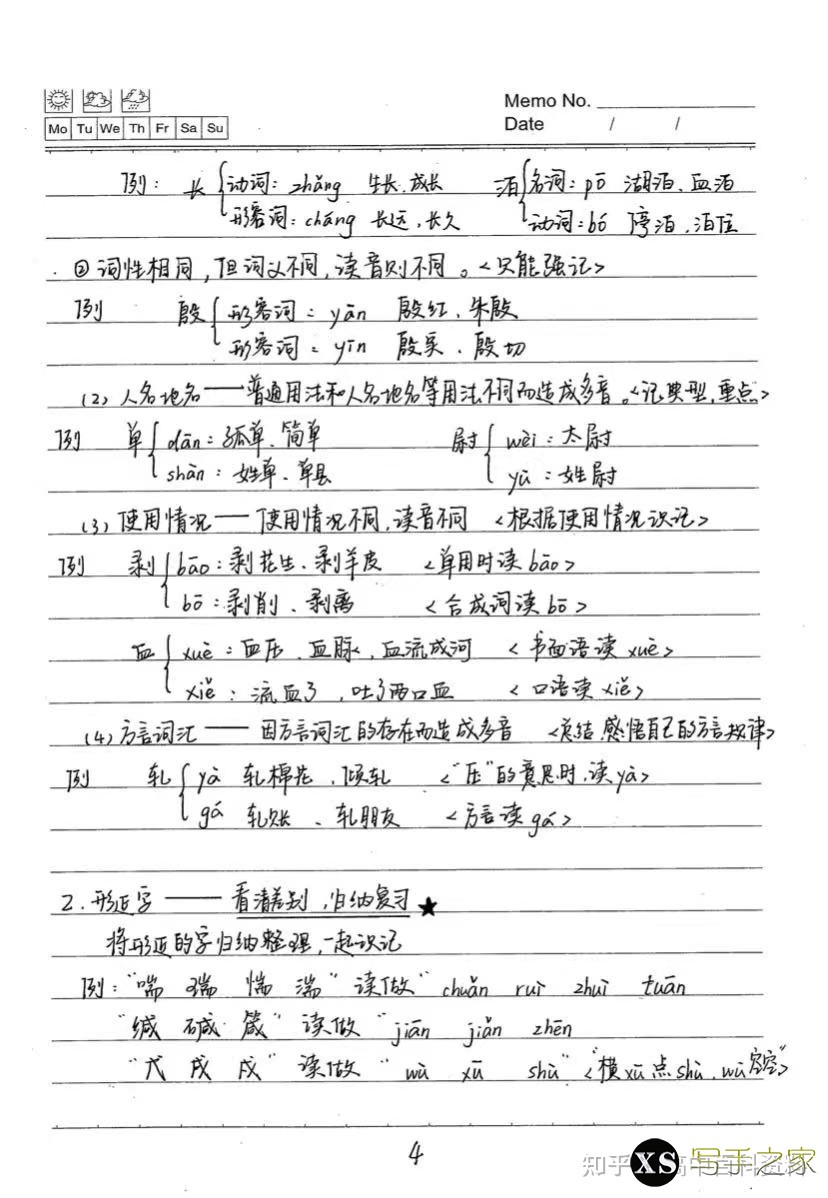 Memo No.
Mo Tu We Th Fr Sa Su
Date / /
例: 长 动词: zhǎng 生长.成长 泊 名词: pō 湖泊、血泊
形容词: cháng 长远,长久 动词: bó 停泊,泊位
② 词性相同,但词义不同,读音则不同。<只能强记>
例 殷 形容词: yān 殷红、朱殷
形容词: yīn 殷实、殷切
(2) 人名地名——普通用法和人名地名等用法不同而造成多音。<记典型,重点>
例 单 dān: 孤单、简单 尉 wèi: 太尉
shàn: 姓单、单县 yù: 姓尉
(3) 使用情况——使用情况不同,读音不同 <根据使用情况识记>
例 剥 bāo: 剥花生、剥羊皮 <单用时读 bāo>
bō: 剥削、剥离 <合成词读 bō>
血 xuè: 血压、血脉,血流成河 <书面语读 xuè>
xiě: 流血了,吐了两口血 <口语读 xiě>
(4) 方言词汇——因方言词汇的存在而造成多音 <总结,感悟自己的方言规律>
例 轧 yà 轧棉花、倾轧 <“压”的意思时,读yà>
gá 轧账、轧朋友 <方言读 gá>
2. 形近字——看清差别,归纳复习 ★
将形近的字归纳整理,一起识记
例: “喘 瑞 惴 湍” 读做 “chuǎn ruì zhuì tuān
“缄 碱 箴” 读做 “jiān jiǎn zhēn
“戊 戌 戍” 读做 “wù xū shù” <“横 xū 点 shù, wù 空空”>
4
知乎 高中百科资料
XS 写手之家